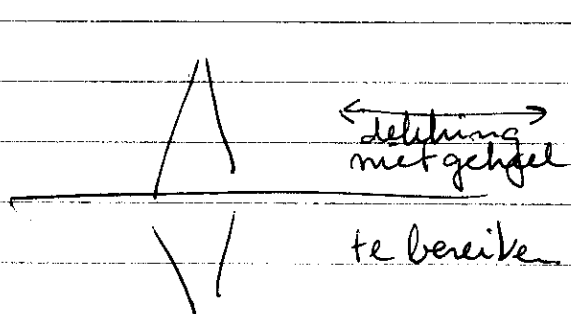 dekking
met geheel
te bereiken